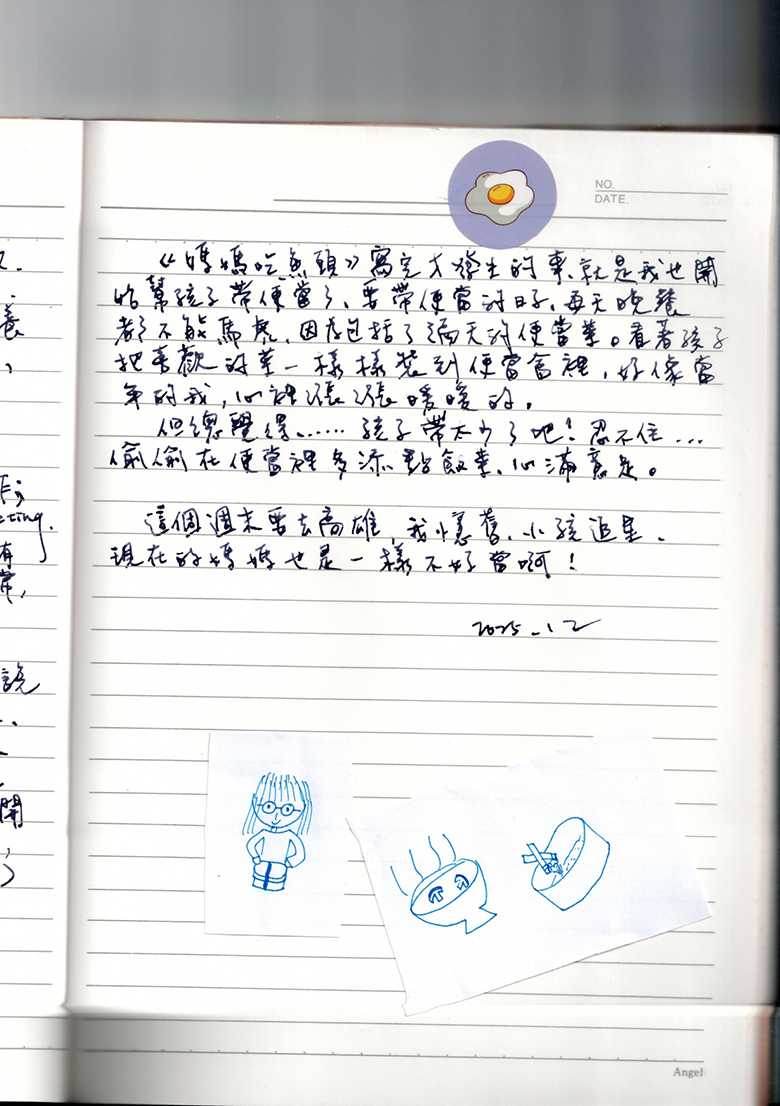 NO.
DATE.
《媽媽吃魚頭》寫完才發生的事,就是我也開
始幫孩子帶便當了、要帶便當的日子,每天晚餐
都不能馬虎,因為包括了隔天的便當菜。看著孩子
把喜歡的菜一樣樣裝到便當盒裡,好像當
年的我,心裡漲漲暖暖的。
但總覺得……孩子帶太少了吧!忍不住…
偷偷在便當裡多添點飯菜、心滿意足。
這個週末要去高雄,我懷舊、小孩追星、
現在的媽媽也是一樣不好當啊!
2025.12
cting.
有
說
開
Angel